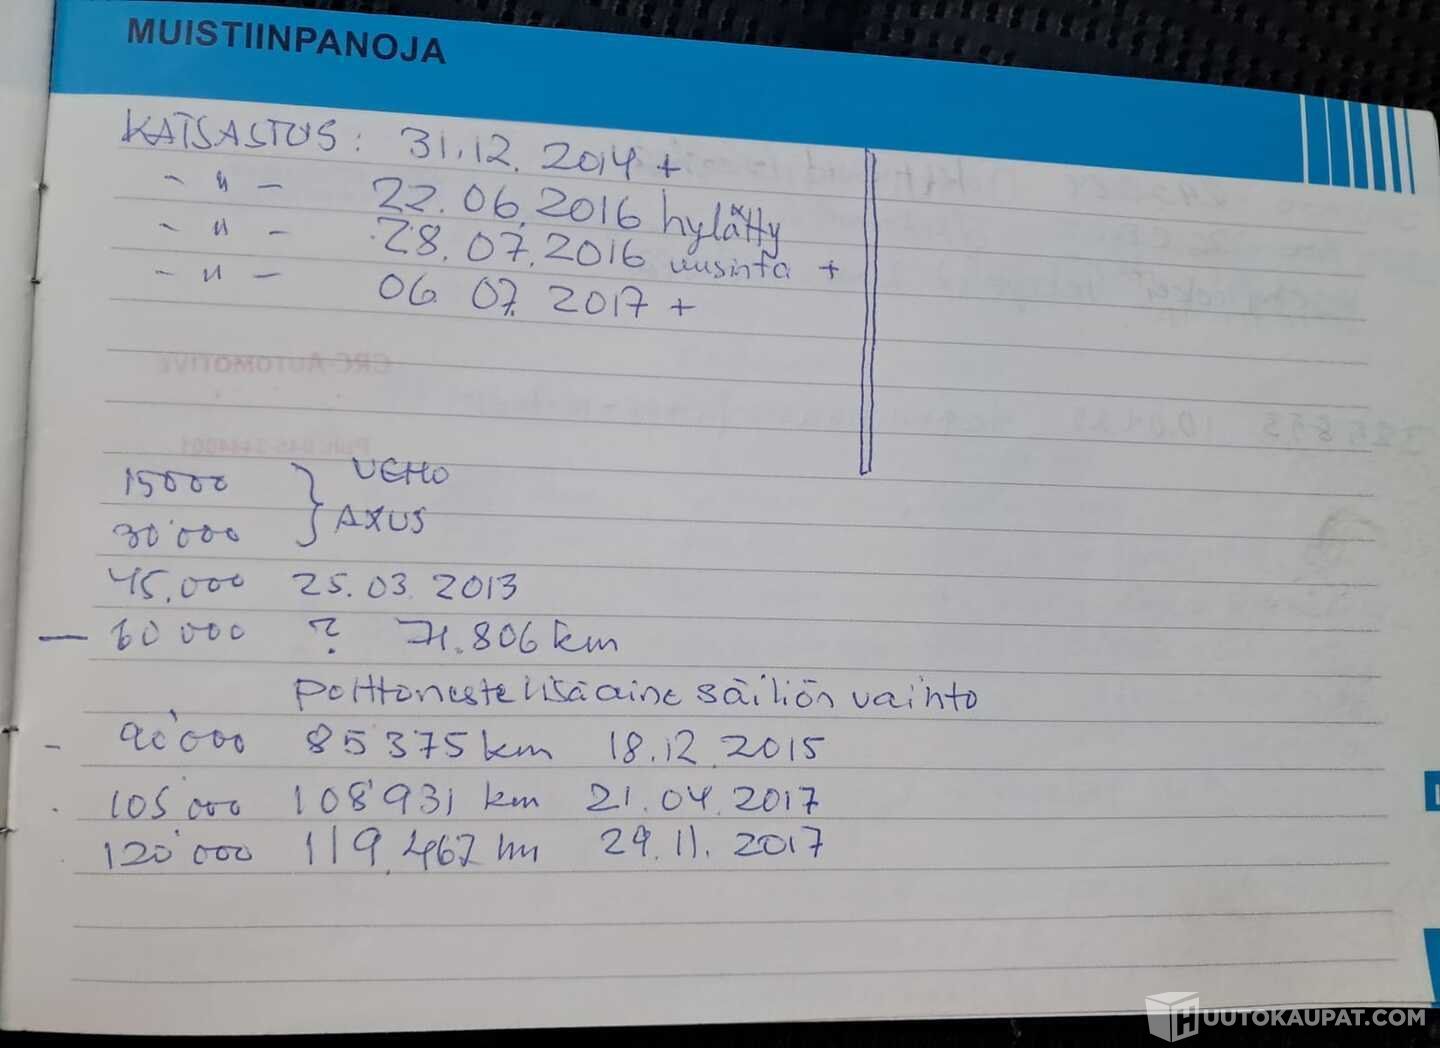 MUISTIINPANOJA
KATSASTUS: 31.12.2014 +
- " - 22.06.2016 hylätty
- " - 28.07.2016 uusinta +
- " - 06.07.2017 +
15000 } VEHO
30'000 } AXUS
45.000 25.03.2013
— 60 000 ? 71.806 km
polttoneste lisäaine säiliön vaihto
- 90'000 85375 km 18.12.2015
105'000 108'931 km 21.04.2017
120'000 119.467 km 29.11.2017
HUUTOKAUPAT.COM